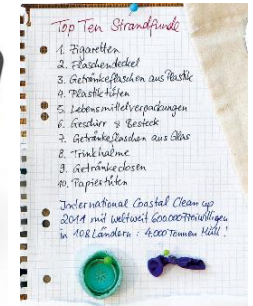 Top Ten Strandfunde
1. Zigaretten
2. Flaschendeckel
3. Getränkeflaschen aus Plastik
4. Plastiktüten
5. Lebensmittelverpackungen
6. Geschirr & Besteck
7. Getränkeflaschen aus Glas
8. Trinkhalme
9. Getränkedosen
10. Papiertüten
International Coastal Clean up
2011 mit weltweit 600.000 Freiwilligen
in 108 Ländern : 4.000 Tonnen Müll !